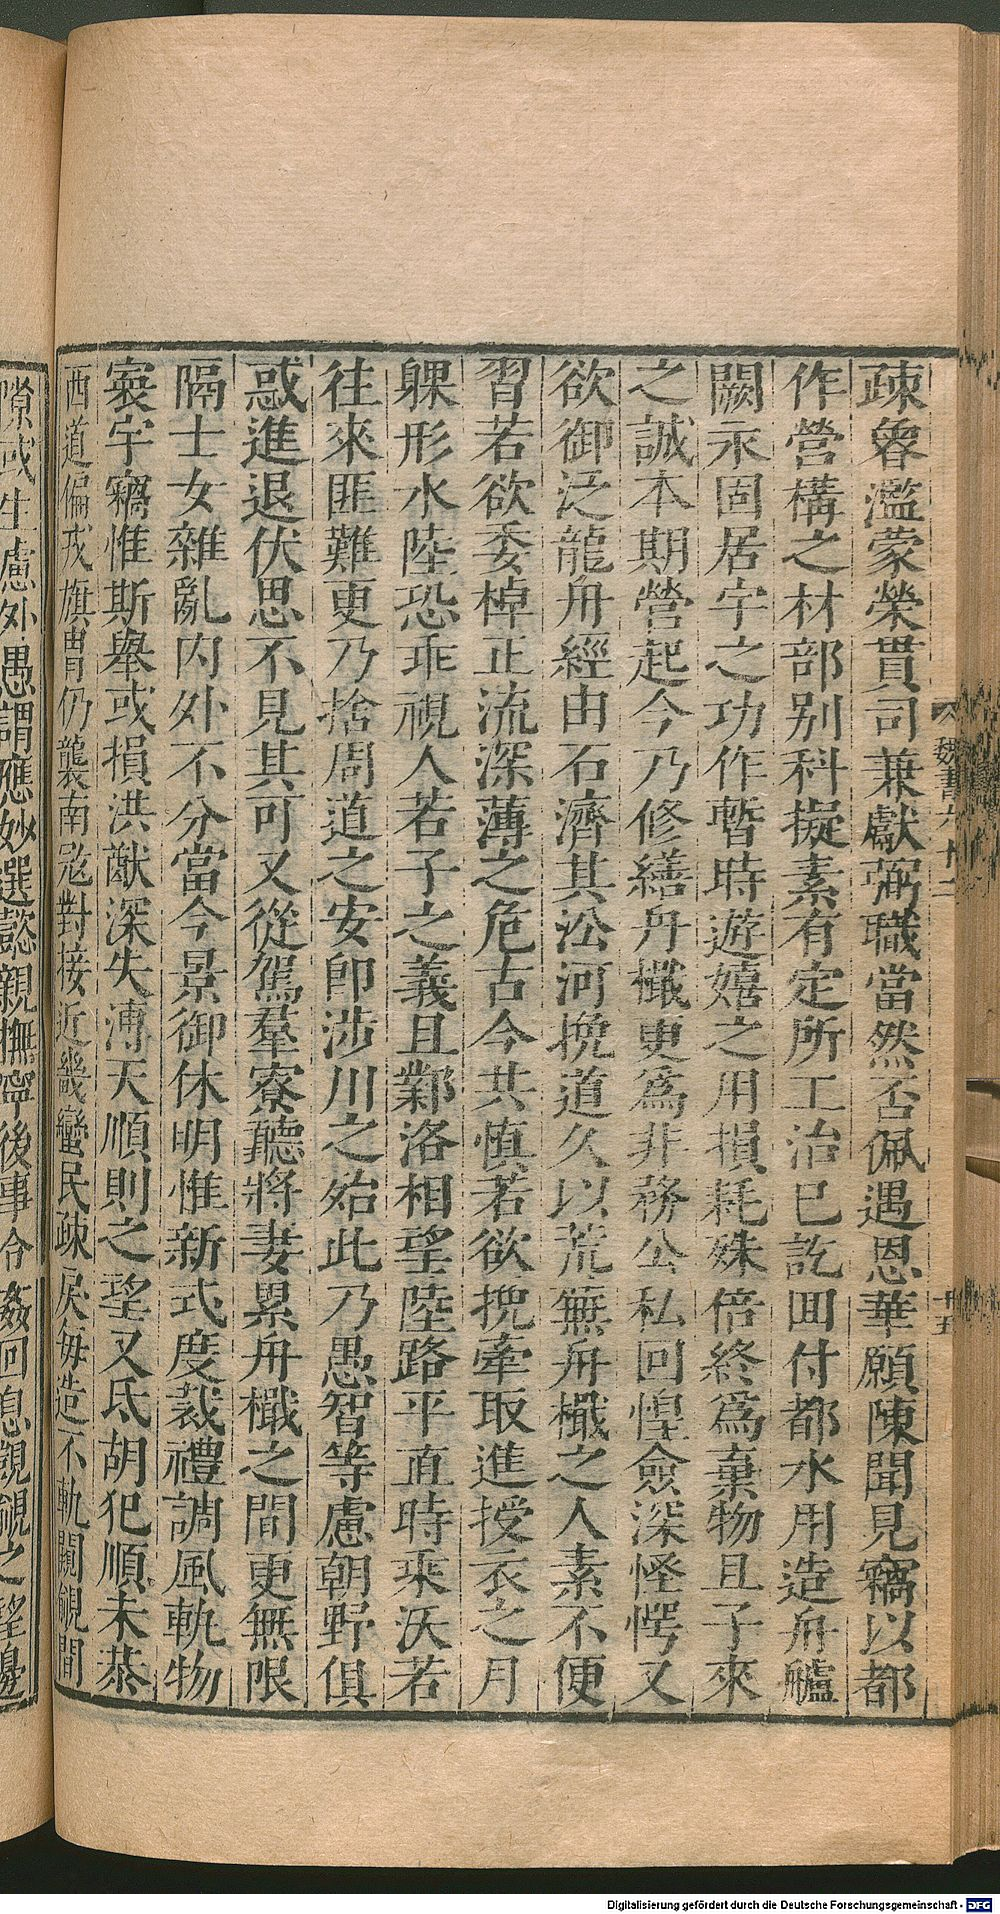 疎𥈠濫蒙榮貫司兼獻弼職當然否佩遇恩華願陳聞見竊以都
作營構之材部別科擬素有定所工治已訖迴付都水用造舟艫
闕永固居宇之功作暫時遊嬉之用損耗殊倍終爲棄物且子來
之誠本期營起今乃修繕舟檝更爲非務公私回惶僉深怪愕又
欲御泛龍舟經由石濟其㳂河挽道久以荒蕪舟檝之人素不便
習若欲委棹正流深薄之危古今共慎若欲挽牽取進授衣之月
躶形水陸恐乖視人若子之義且鄴洛相望陸路平直時乘沃若
往來匪難更乃捨周道之安卽涉川之殆此乃愚智等慮朝野俱
惑進退伏思不見其可又從駕羣寮聽將妻累舟檝之間更無限
隔士女雜亂内外不分當今景御休明惟新式度裁禮調風軌物
寰宇竊惟斯舉或損洪猷深失溥天順則之望又氐胡犯順未恭
西道偏戎旗胄仍襲南寇對接近畿蠻民疎戾每造不軌闚覦間
隙或生慮外愚謂應妙選懿親撫寧後事令姦回息覬覦之望邊
魏書六十二
十五
Digitalisierung gefördert durch die Deutsche Forschungsgemeinschaft - DFG